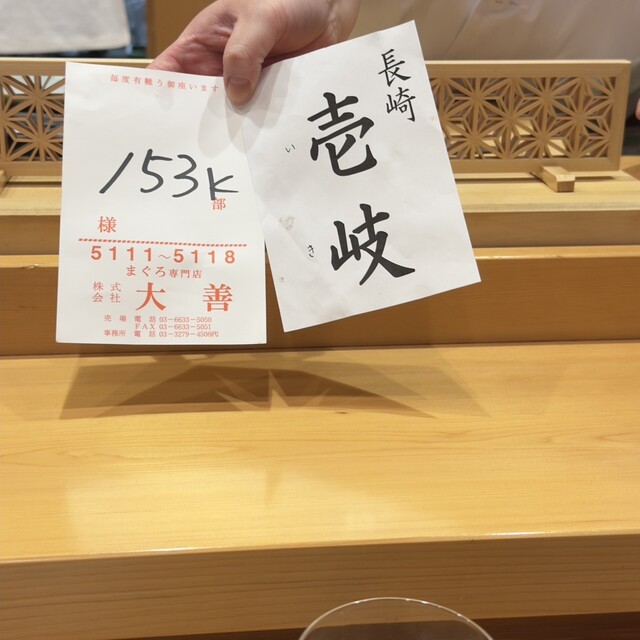 毎度有難う御座います
153K
部
様
5111～5118
まぐろ専門店
株式会社 大善
売場 電話 03-6633-5050
FAX 03-6633-5051
事務所 電話 03-3279-4506㈹
長崎
壱岐
いき